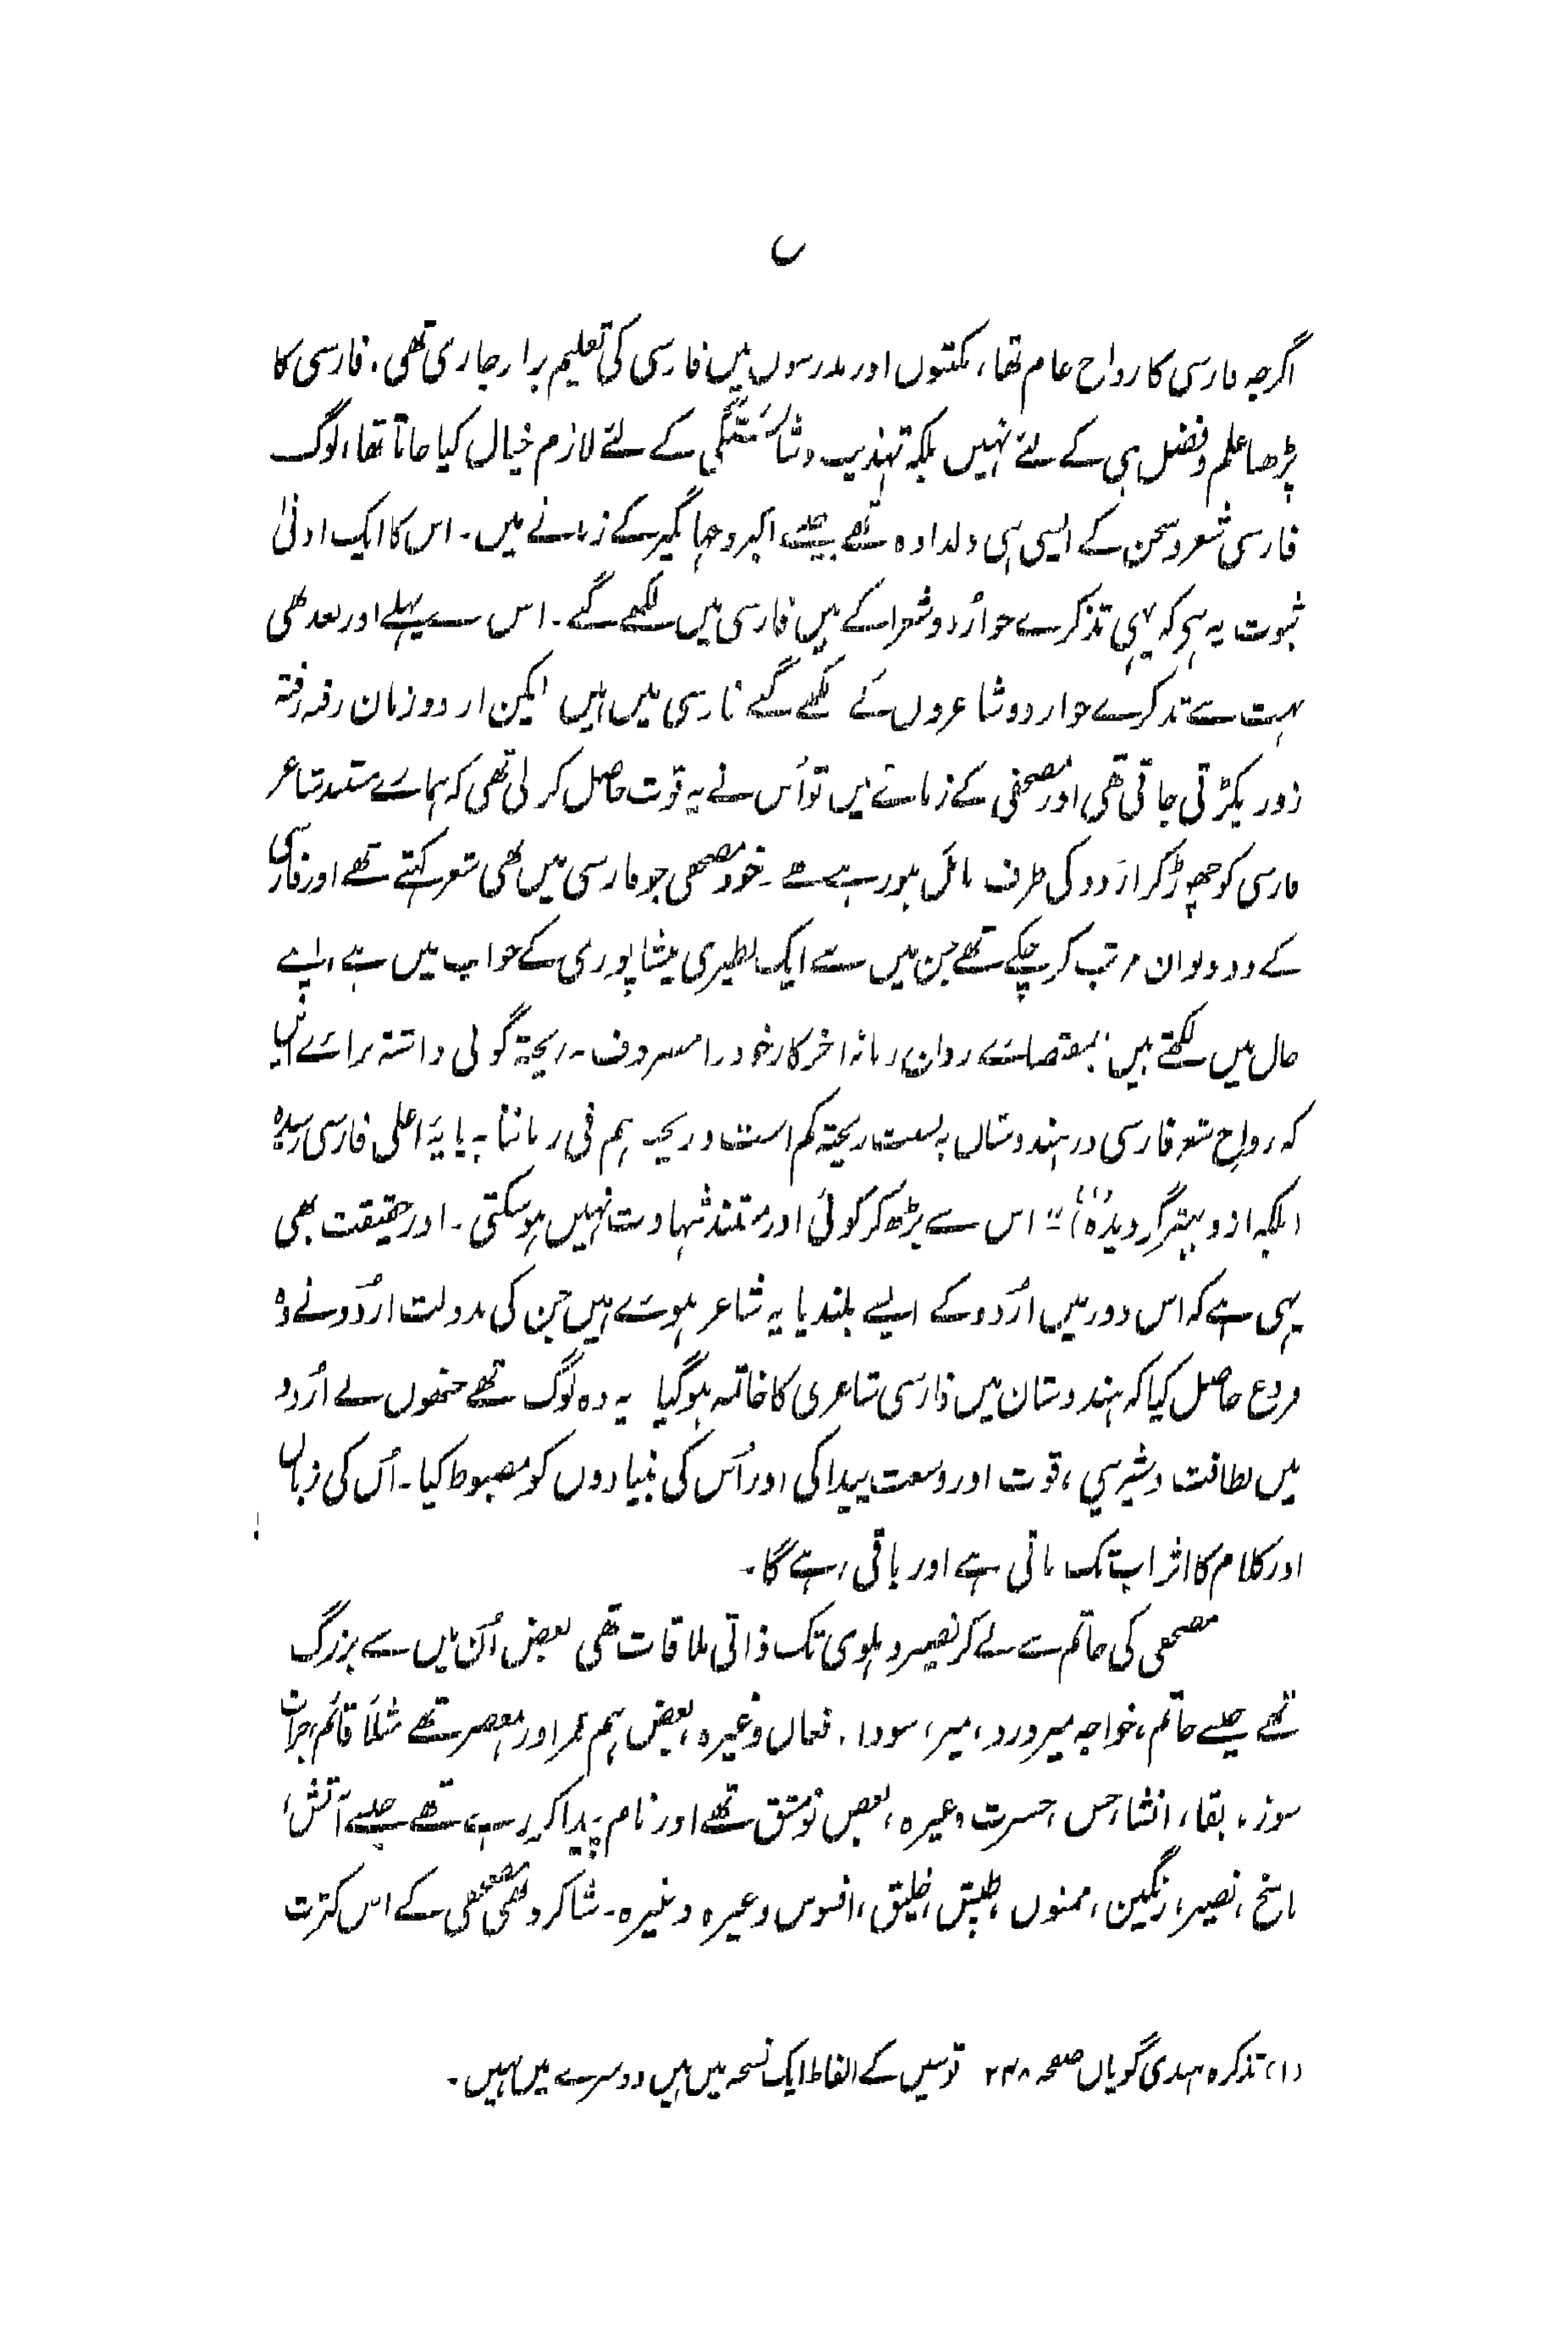 ن
اگرچہ فارسی کا رواج عام تھا، مکتبوں اور مدرسوں میں فارسی کی تعلیم برابر جاری تھی، فارسی کا
پڑھنا علم و فضل ہی کے لئے نہیں بلکہ تہذیب و شائستگی کے لئے لازم خیال کیا جاتا تھا، لوگ
فارسی شعر و سخن کے ایسی ہی دلدادہ تھے جیسے اکبر و جہانگیر کے زمانے میں۔ اس کا ایک ادنیٰ
ثبوت یہ ہی کہ یہی تذکرے جو اُردو شعرا کے ہیں فارسی میں لکھے گئے۔ اس سے پہلے اور بعد بھی
بہت سے تذکرے جو اردو شاعروں کے لکھے گئے فارسی میں ہیں لیکن اردو زبان رفتہ رفتہ
زور پکڑتی جاتی تھی اور مصحفی کے زمانے میں تو اُس نے یہ قوت حاصل کرلی تھی کہ ہمارے مستند شاعر
فارسی کو چھوڑ کر اردو کی طرف مائل ہو رہے تھے۔ خود مصحفی جو فارسی میں بھی شعر کہتے تھے اور فارسی
کے دو دیوان مرتب کرچکے تھے جن میں سے ایک نظیری نیشاپوری کے جواب میں ہے، اپنے
حال میں لکھتے ہیں "بمقتضائے رواج زمانہ آخر کار خود را مصروف۔ ریختہ گوئی داشتہ برائے آں
کہ رواج شعر فارسی در ہندوستاں بہ نسبت ریختہ کم است و ریختہ ہم فی زماننا بہ پایۂ اعلی فارسی رسیدہ
(بلکہ ازو بہتر گردیدہ)(۱)"۔ اس سے بڑھ کر کوئی اور مستند شہادت نہیں ہوسکتی۔ اور حقیقت بھی
یہی ہے کہ اس دور میں اُردو کے ایسے بلند پایہ شاعر ہوئے ہیں جن کی بدولت اردو نے وہ
فروغ حاصل کیا کہ ہندوستان میں فارسی شاعری کا خاتمہ ہوگیا یہ وہ لوگ تھے جنھوں نے اُردو
میں لطافت و شیرینی، قوت اور وسعت پیدا کی اور اُس کی بنیادوں کو مضبوط کیا۔ اُن کی زبان
اور کلام کا اثر اب تک باقی ہے اور باقی رہے گا۔
مصحفی کی حاتم سے لے کر نصیر دہلوی تک ذاتی ملاقات تھی بعض اُن میں سے بزرگ
تھے جیسے حاتم، خواجہ میر درد، میر، سودا، فغاں وغیرہ، بعض ہم عمر اور ہمعصر تھے مثلاً قائم، جرأت
سوز، بقا، انشا، حسن، حسرت وغیرہ، بعض نومشق تھے اور نام پیدا کر رہے تھے جیسے آتش،
ناسخ، نصیر، رنگین، ممنوں، طپش، خلیق، افسوس وغیرہ وغیرہ۔ شاگرد بھی مصحفی کے اس کثرت
(۱) تذکرہ ہندی گویاں صفحہ ۲۴۸ قوسین کے الفاظ ایک نسخہ میں ہیں دوسرے میں نہیں۔